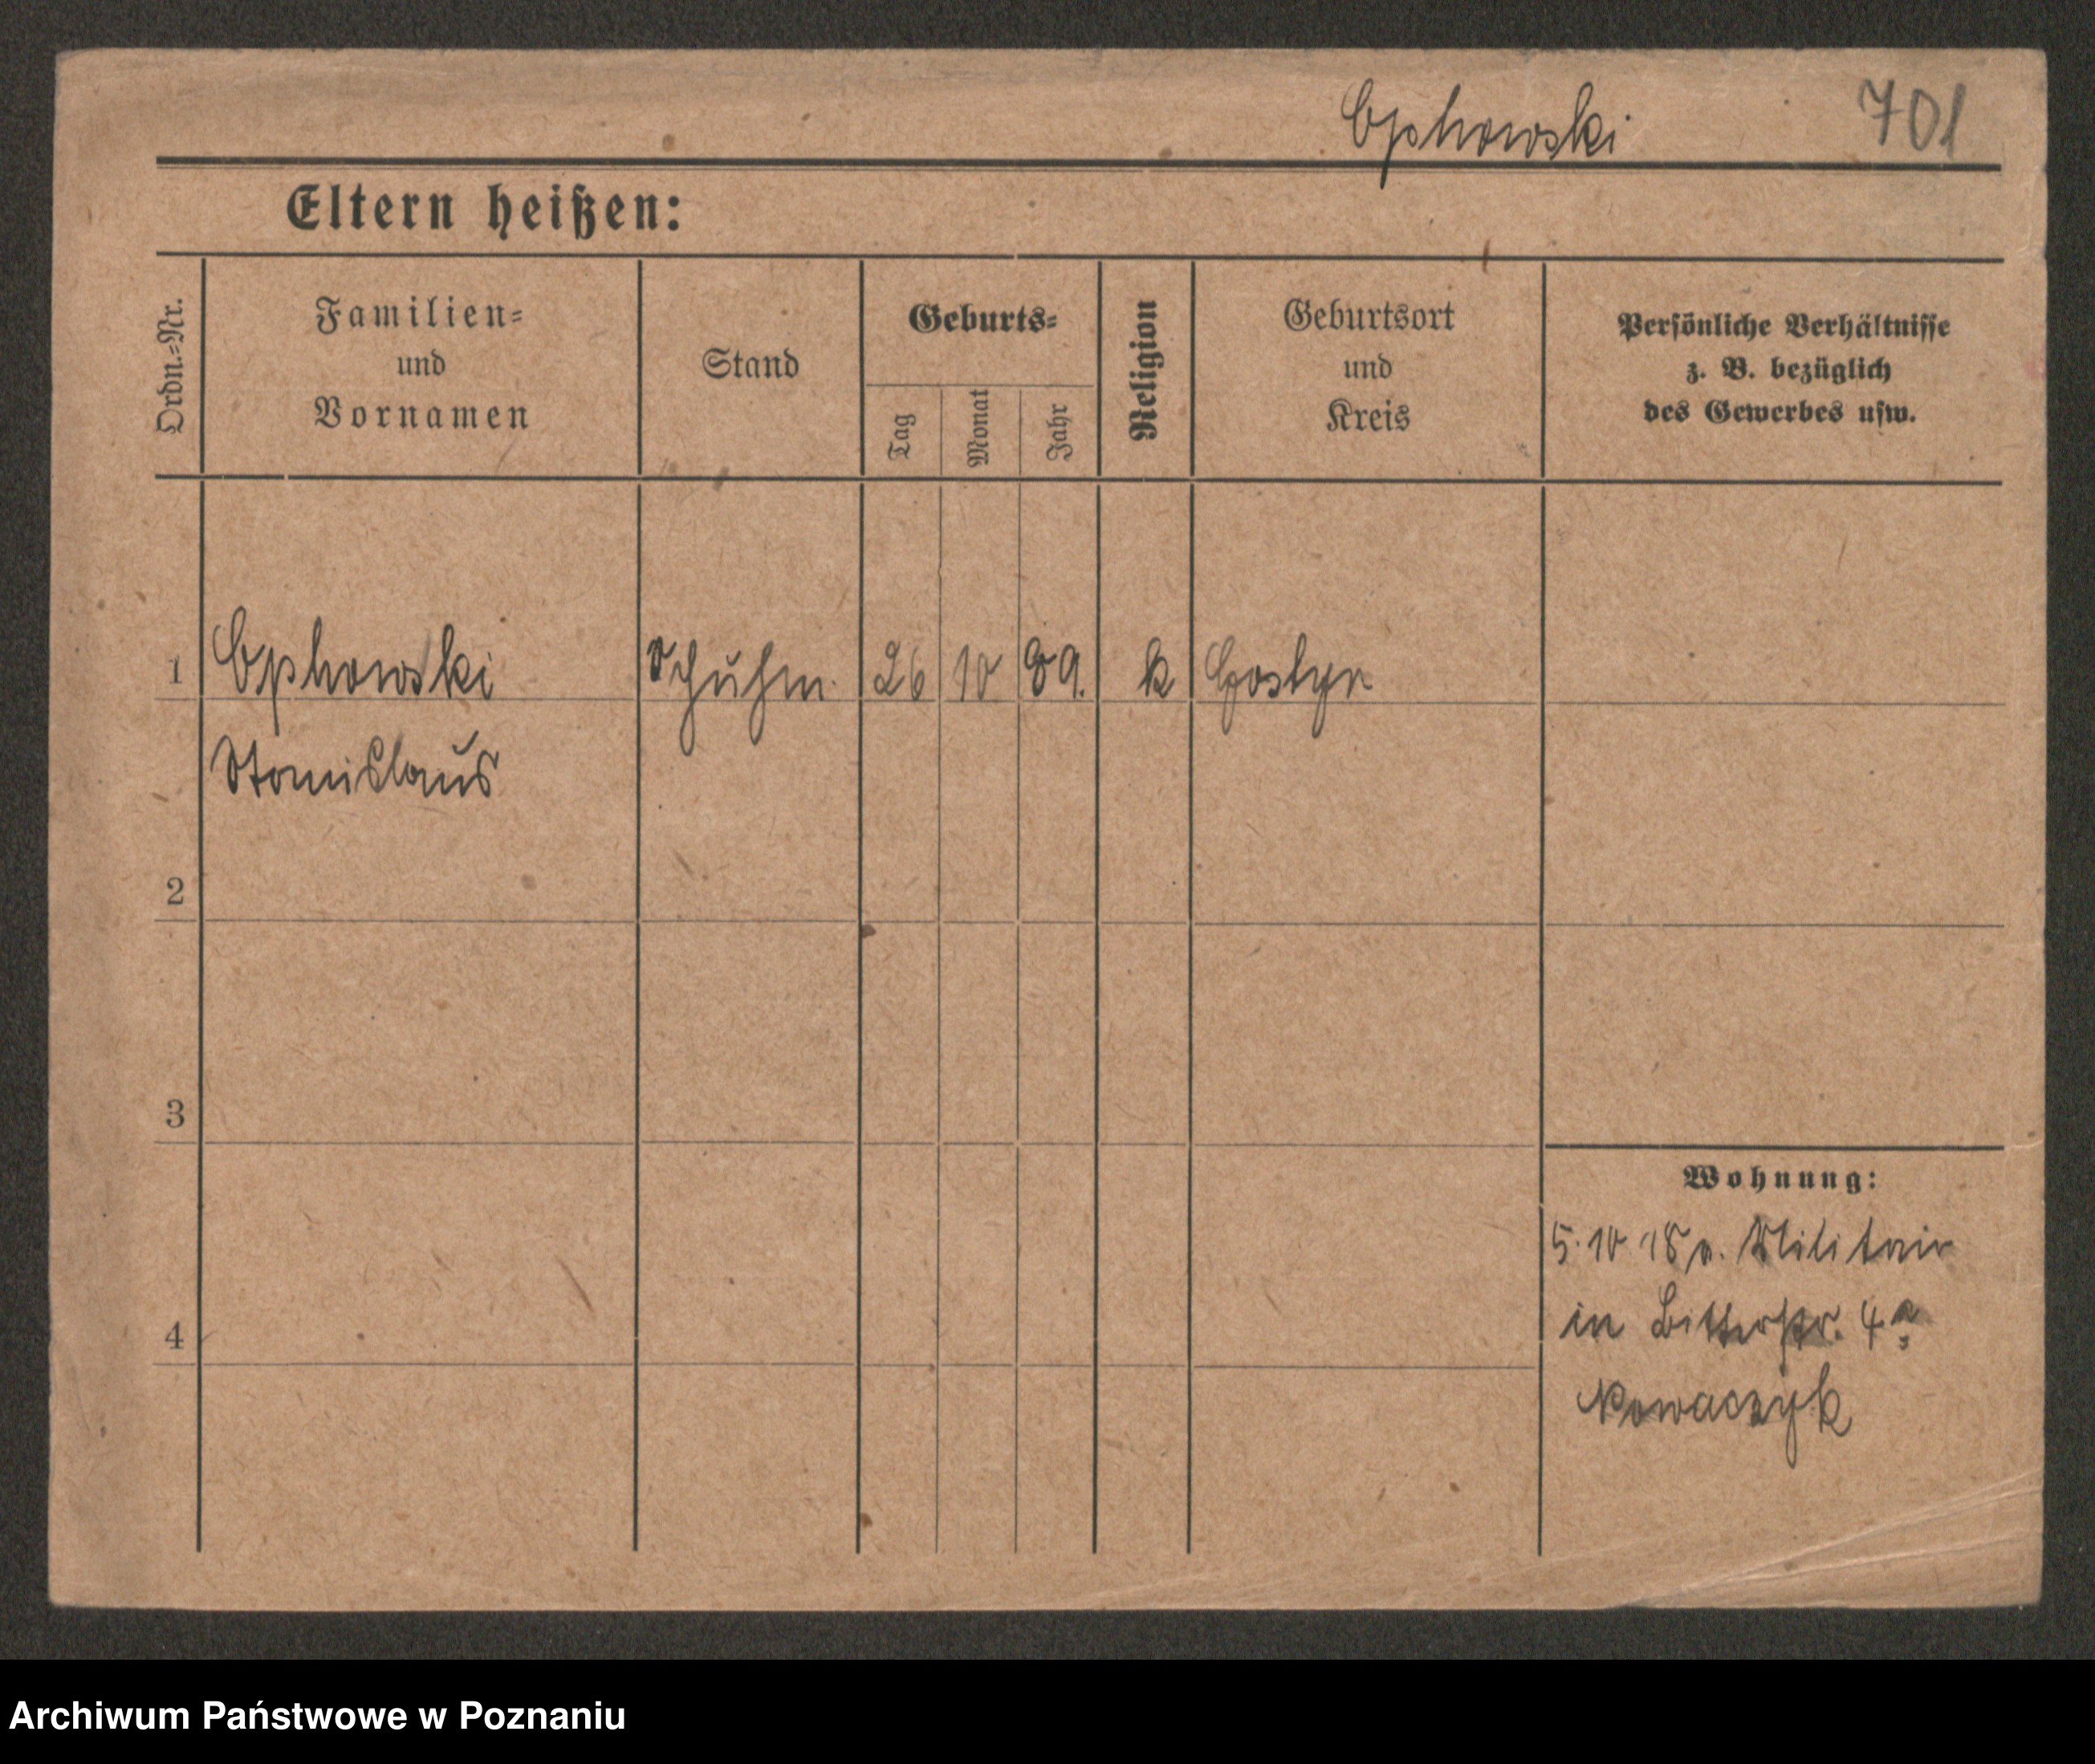 Ophowski 701
Eltern heißen:
Ordn.-Nr.
Familien-
und
Vornamen
Stand
Geburts-
Tag
Monat
Jahr
Religion
Geburtsort
und
Kreis
Persönliche Verhältnisse
z. B. bezüglich
des Gewerbes usw.
1 Ophowski Schuhm. 26 10 89. k Gostyn
Stanislaus
2
3
4
Wohnung:
5.10 18 v. Militair
in Bitterstr. 4a
Nowaczyk
Archiwum Państwowe w Poznaniu